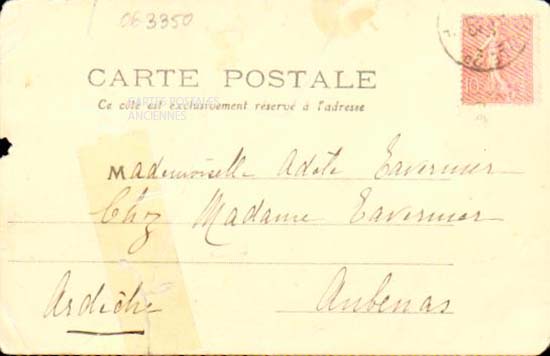 063350
CARTE POSTALE
Ce côté est exclusivement réservé à l'adresse
CARTES POSTALES
ANCIENNES
10
Mademoiselle Adèle Tavernier
Chez Madame Tavernier
Ardèche Aubenas